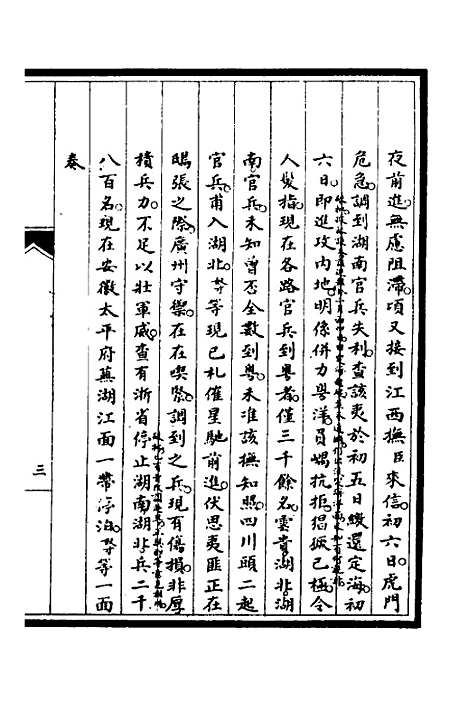 夜前進無慮阻滯項又接到江西撫臣來信初六日虎門
危急調到湖南官兵失利查該夷於初五日繳還定海初
六日即進攻内地明係併力粤洋員嵎抗拒猖獗已極令
人髮指現在各路官兵到粤者僅三千餘名雲貴湖北湖
南官兵未知曾否全數到粤未准該撫知照四川頭二起
官兵甫入湖北等現已札催星馳前進伏思夷匪正在
鴟張之際廣州守禦在在喫緊調到之兵現有傷損非厚
積兵力不足以壯軍威查有浙省停止湖南湖北兵二千
八百名現在安徽太平府蕪湖江面一帶停泊等等一面
奏
三